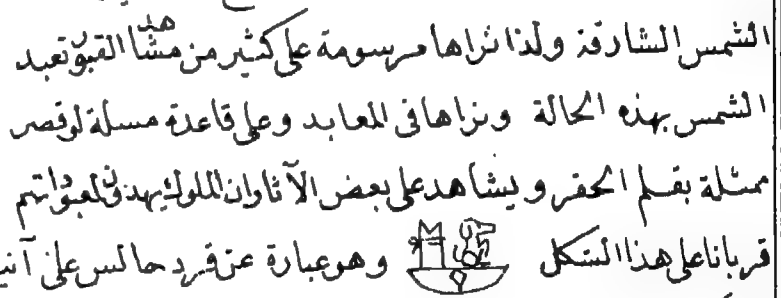 الشمس الشارقة ولذا نراها مرسومة على كثير من مشاهد القبور تعبد
الشمس بهذه الحالة ونراها فى المعابد وعلى قاعدة مسلة لوقصر
ممثلة بقلم الحفر ويشاهد على بعض الآثار ان الملوك يهدون لمعبوداتهم
قربانا على هذا الشكل وهو عبارة عن قرد جالس على آنية